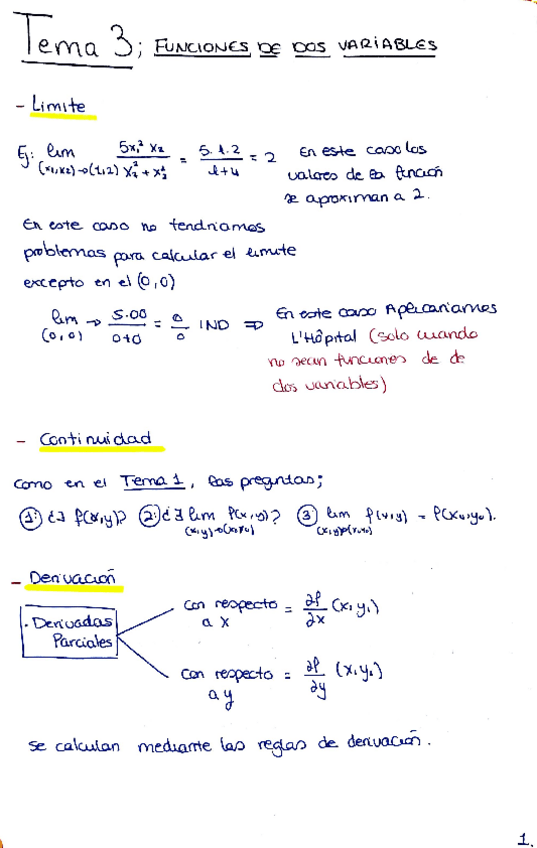 Tema 3; FUNCIONES DE DOS VARIABLES
- Límite
Ej: lim (x₁,x₂)→(1,2) 5x₁² x₂ / x₁² + x₂² = 5·1·2 / 1+4 = 2 En este caso los
valores de la función
se aproximan a 2.
En este caso no tendríamos
problemas para calcular el límite
excepto en el (0,0)
lim (0,0) → 5·00 / 0+0 = 0/0 IND ⇒ En este caso Aplicaríamos
L'Hôpital (solo cuando
no sean funciones de de
dos variables)
- Continuidad
Como en el Tema 1, las preguntas;
①: ¿∃ f(x,y)? ②: ¿∃ lim (x,y)→(x₀,y₀) f(x,y)? ③ lim (x,y)→(x₀,y₀) f(x,y) = f(x₀,y₀).
- Derivación
· Derivadas
Parciales
con respecto a x = ∂f/∂x (x,y,)
con respecto a y = ∂f/∂y (x,y,)
se calculan mediante las reglas de derivación.
1.